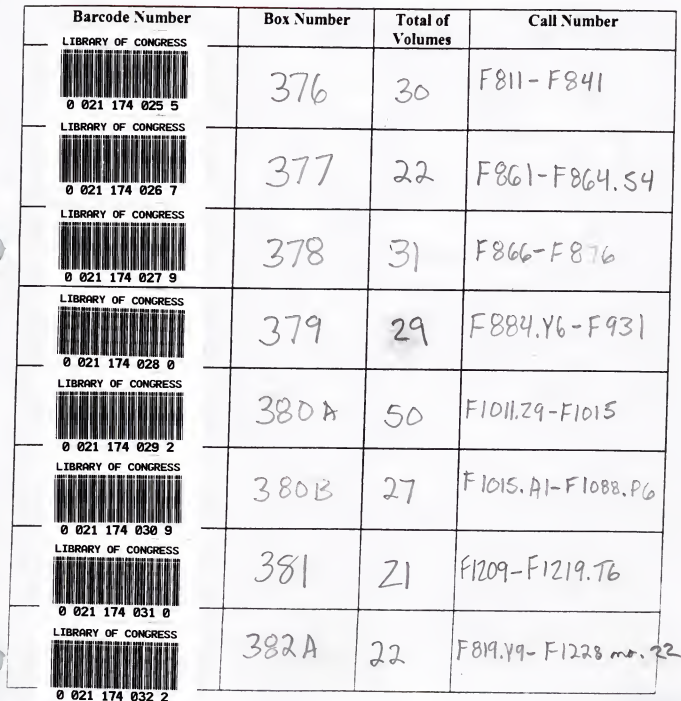 Barcode Number Box Number Total of Volumes Call Number
LIBRARY OF CONGRESS
0 021 174 025 5
376 30 F811-F841
LIBRARY OF CONGRESS
0 021 174 026 7
377 22 F861-F864.S4
LIBRARY OF CONGRESS
0 021 174 027 9
378 31 F866-F876
LIBRARY OF CONGRESS
0 021 174 028 0
379 29 F884.Y6-F931
LIBRARY OF CONGRESS
0 021 174 029 2
380A 50 F1011.Z9-F1015
LIBRARY OF CONGRESS
0 021 174 030 9
380B 27 F1015.A1-F1088.P6
LIBRARY OF CONGRESS
0 021 174 031 0
381 21 F1209-F1219.T6
LIBRARY OF CONGRESS
0 021 174 032 2
382A 22 F819.Y9-F1228 no. 22